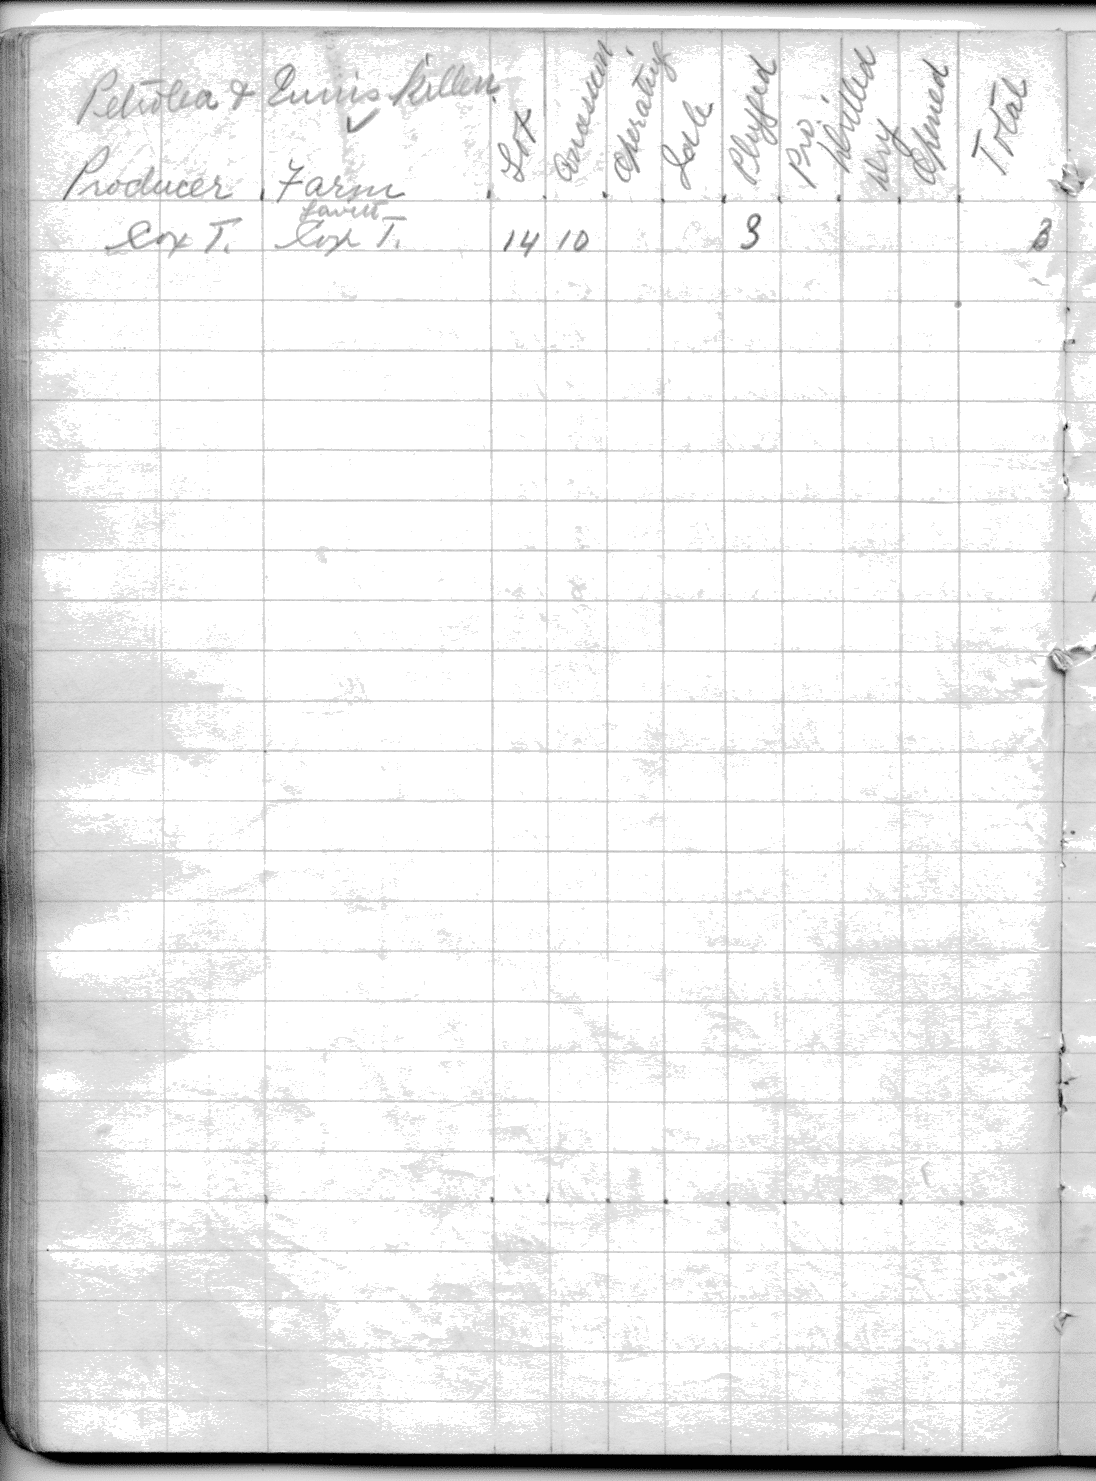 Petrolea & Ennis Killen
Producer Farm Lot Concession Operating Idle Plugged Pro. Drilled Dry Opened Total
Cox T. Cox T. 14 10 3 3